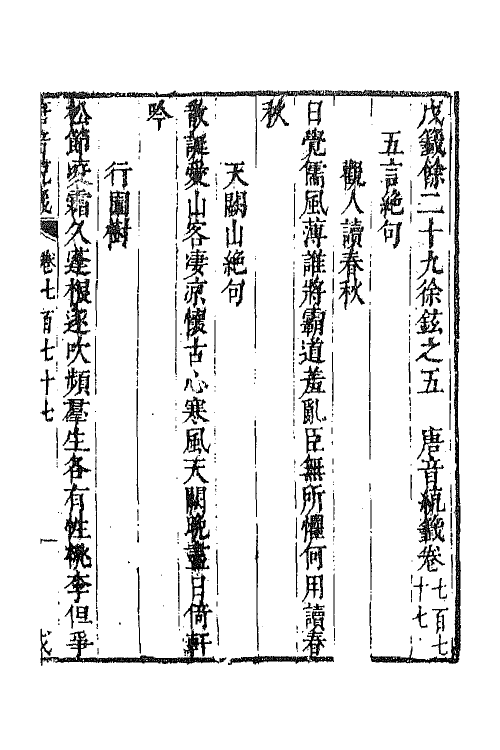 戊籤餘二十九徐鉉之五　唐音統籤卷七百七十七
五言絕句
觀人讀春秋
日覺儒風薄誰將霸道羞亂臣無所懼何用讀春
秋
天闕山絕句
散誕愛山客淒涼懷古心寒風天闕晚盡日倚軒
吟
行園樹
松節凌霜久蓬根逐吹頻羣生各有性桃李但爭
唐音統籤　卷七百七十七　一　戊